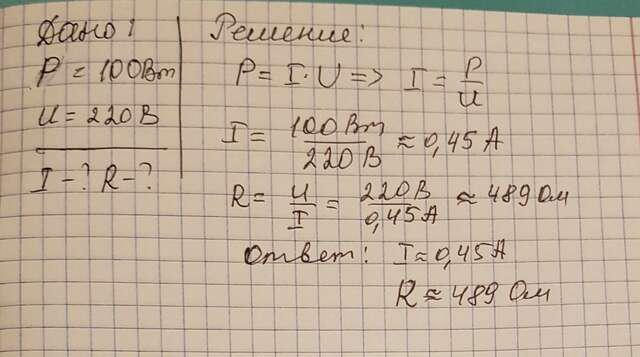 Дано:
P = 100Вт
U = 220 В
I - ? R - ?
Решение:
P = I · U => I = P/U
I = 100 Вт/220 В ≈ 0,45 А
R = U/I = 220 В/0,45 А ≈ 489 Ом
Ответ: I ≈ 0,45 А
R ≈ 489 Ом